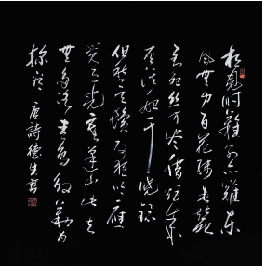 相見时難别亦難东
风無力百花残春蚕
到死丝方尽蜡炬成
灰泪始干晓镜
但愁云鬓改夜吟應
觉月光寒蓬山此去
無多路青鸟殷勤为
探看
唐詩德生书